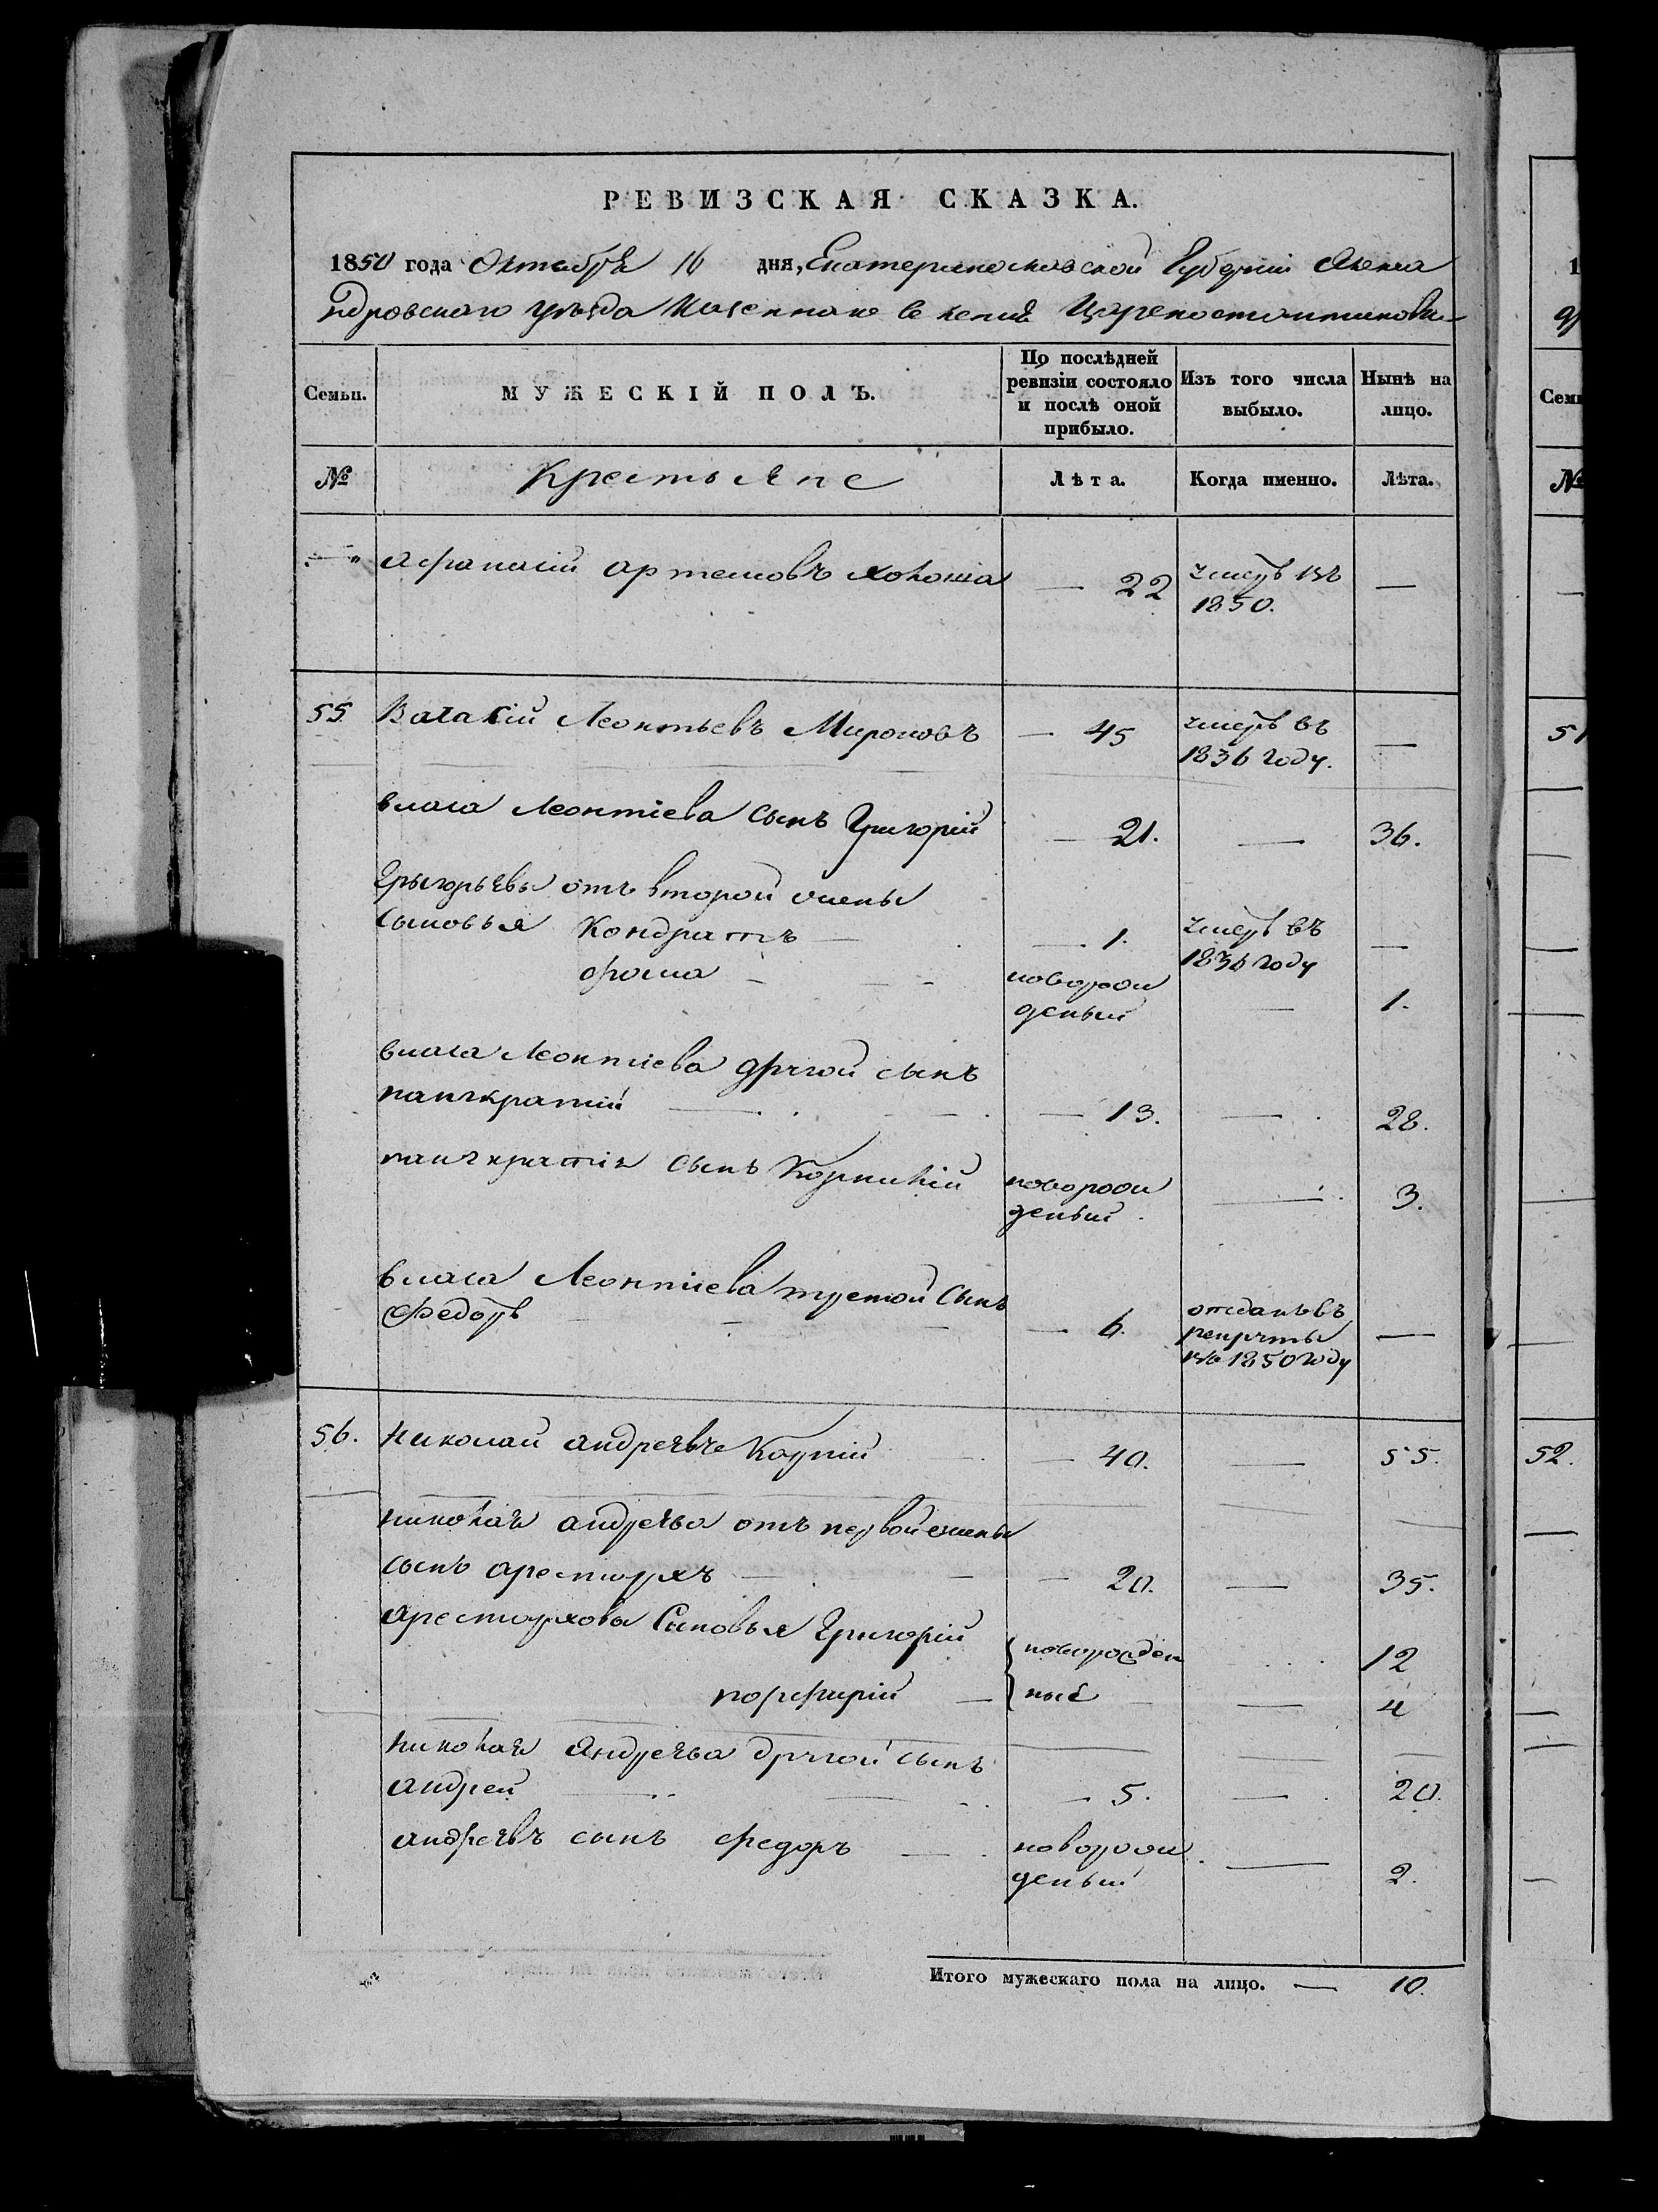 РЕВИЗСКАЯ СКАЗКА.
1850 года Октября 16 дня, Екатеринославской Губерніи Алекса
ндровского уѣзда Казенного селенія Цареконстантинов
Семьи.
МУЖЕСКІЙ ПОЛЪ.
По послѣдней ревизіи состояло и послѣ оной прибыло.
Изъ того числа выбыло.
Нынѣ на лицо.
№ Крестьяне Лѣта. Когда именно. Лѣта.
Афанасій Артемовъ — 22 умеръ въ —
1850.
55 Леонтьевъ Мироновъ — 45 умеръ въ —
1836 году.
Власа Леонтіева сынъ Григорій — 21. — 36.
Григорьевы отъ второй жены
сыновья Кондратъ — — 1. умеръ въ —
1836 году
Фома — новорож
деный — 1.
Власа Леонтіева другой сынъ
панкратій — — 13. — 28.
панкратія сынъ Корнилій новорож
деный — 3.
Власа Леонтіева третой сынъ
Федоръ — 6. отданъ въ
рекруты —
въ 1850 году
56. Николай андреевъ — 40. — 55.
николая андреева отъ первой жены
сынъ арестархъ — — 20. — 35.
арестархова Сыновья Григорій новорожден 12
порфирій — ные — 4
николая Андреева другой сынъ
андрей — 5. — 20.
андреевъ сынъ федоръ — новорож
деный — 2.
Итого мужескаго пола на лицо. — 10.
51
52.